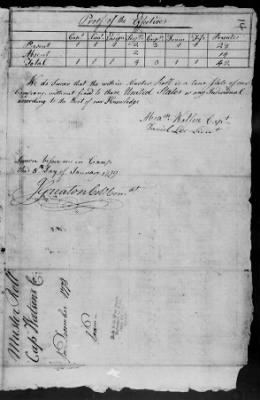 Proof of the Effectives
Capt Lieut Ensign Serjts Corpl Drum Fife Privates
Present 1 1 1 2 3 1 1 28
Absent
Total 1 1 1 3 1 1 42
We do Swear that the within Muster Roll is a true State of our
Company without fraud to these United States or any Individual
according to the Best of our Knowledge
Capt
Daniel Lee Lieut
Sworn before me in Camp
this 5th Day of January 1779
J Greaton Colo Com dt
Muster Roll
Capt Watsons Co
for December 1778